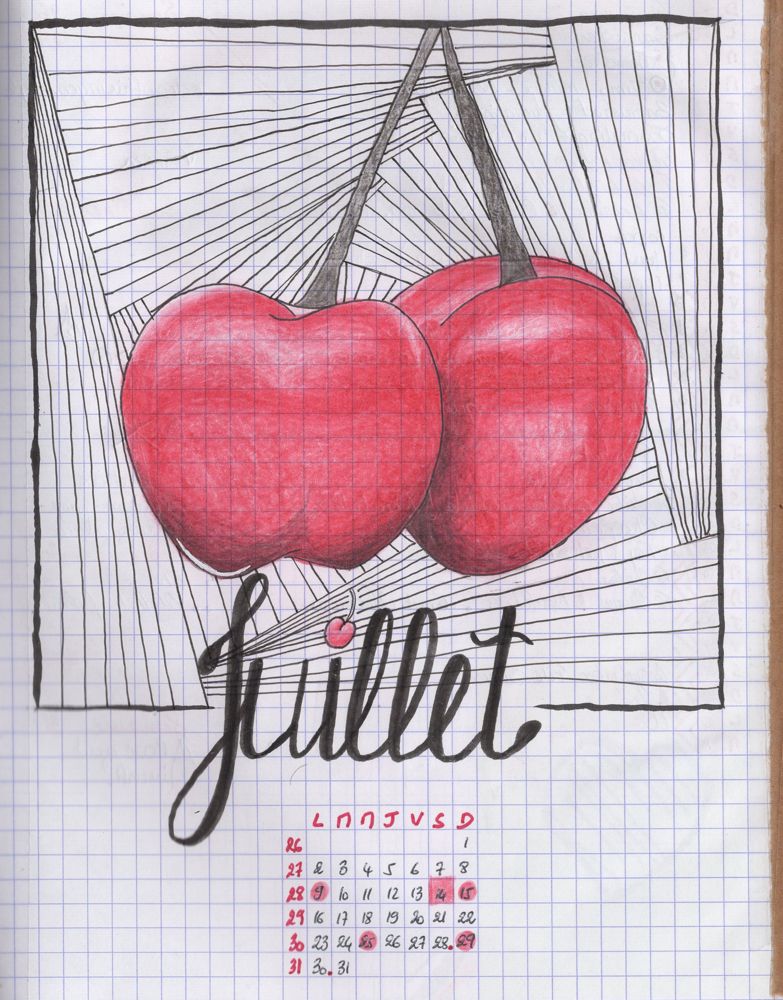 Juillet
L M M J V S D
26 1
27 2 3 4 5 6 7 8
28 9 10 11 12 13 14 15
29 16 17 18 19 20 21 22
30 23 24 25 26 27 28. 29
31 30. 31